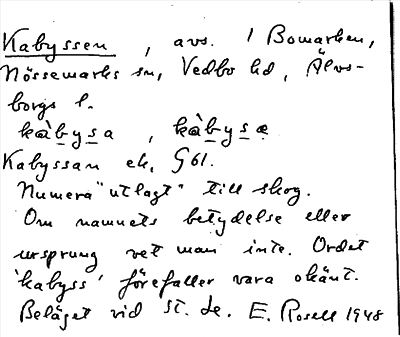 Kabyssen, avs. i Bomarken,
Nössemarks sn, Vedbo hd, Älvs-
borgs l.
kàbysa, kàbysæ
Kabyssan ek, G61.
Numera "utlagt" till skog.
Om namnets betydelse eller
ursprung vet man inte. Ordet
'kabyss' förefaller vara okänt.
Beläget vid st. de. E. Rosell 1948